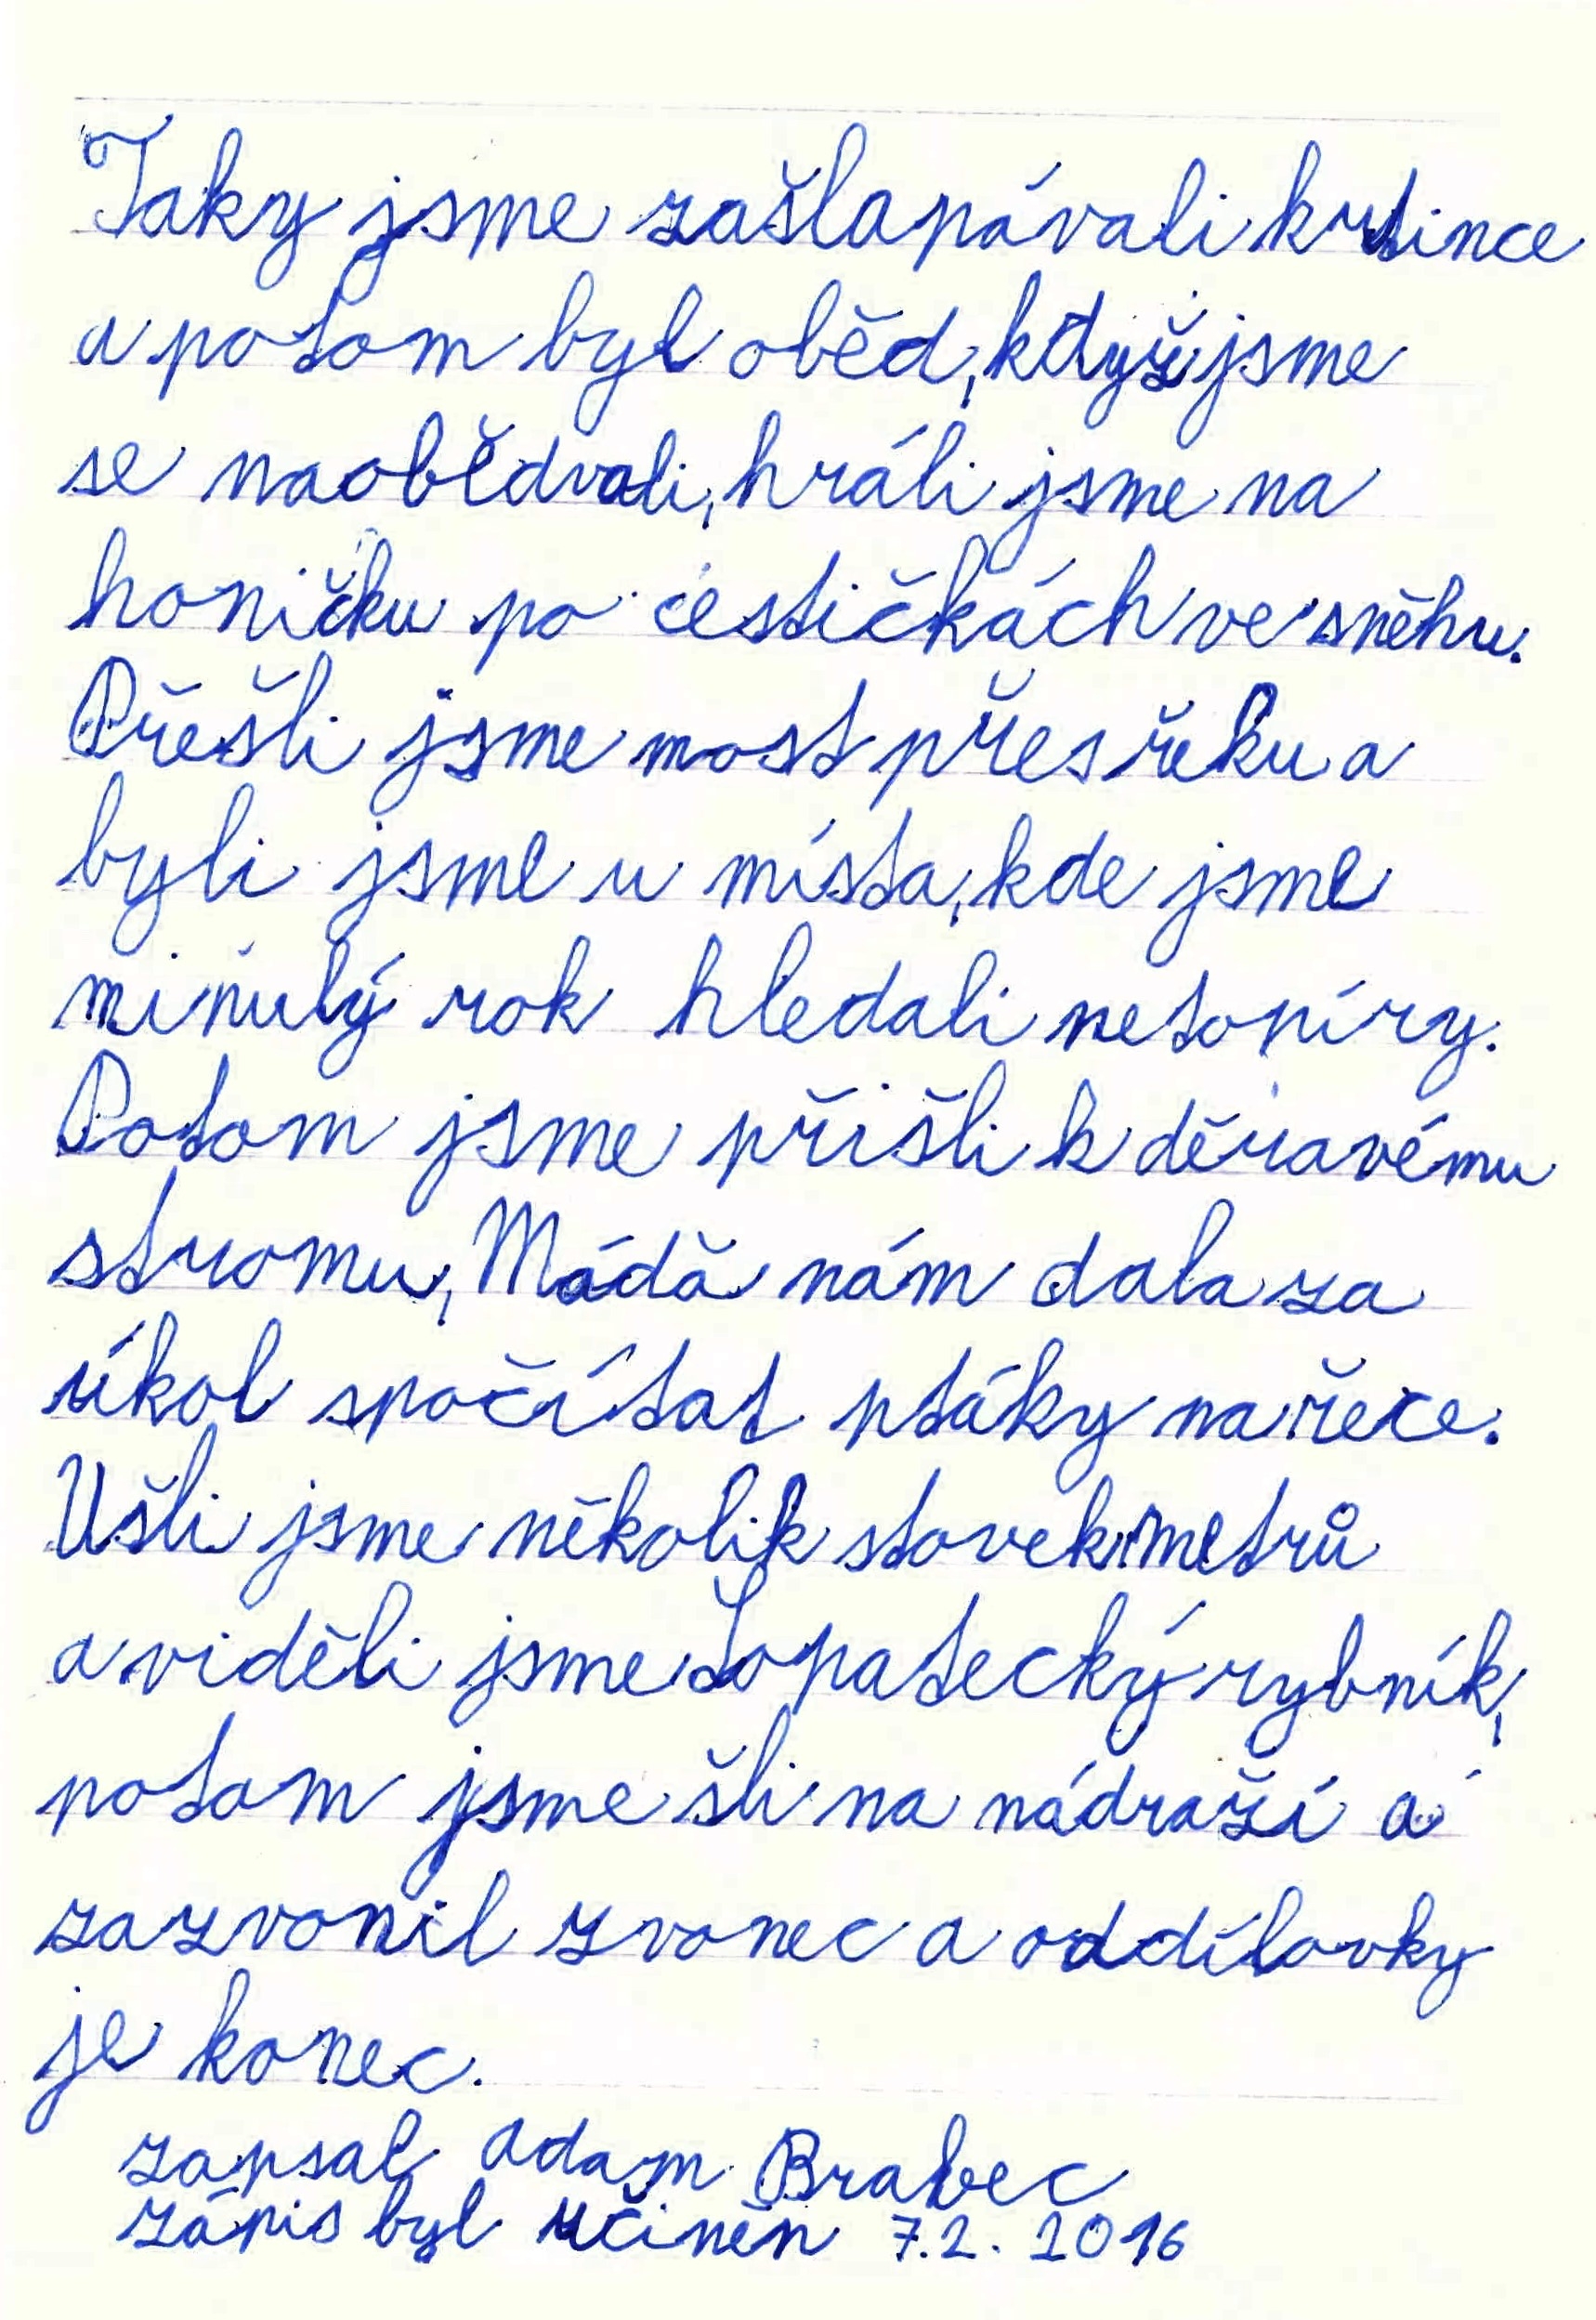 Taky jsme zašlapávali krtince
a potom byl oběd, když jsme
se naobědvali, hráli jsme na
honičku po cestičkách ve sněhu.
Přešli jsme most přes řeku a
byli jsme u místa, kde jsme
minulý rok hledali netopíry.
Potom jsme přišli k děravému
stromu, Máďa nám dala za
úkol spočítat ptáky na řece.
Ušli jsme několik stovek metrů
a viděli jsme Lopatecký rybník,
potom jsme šli na nádraží a
zazvonil zvonec a oddílovky
je konec.
zapsal Adam Brabec
zápis byl učiněn 7.2. 2016